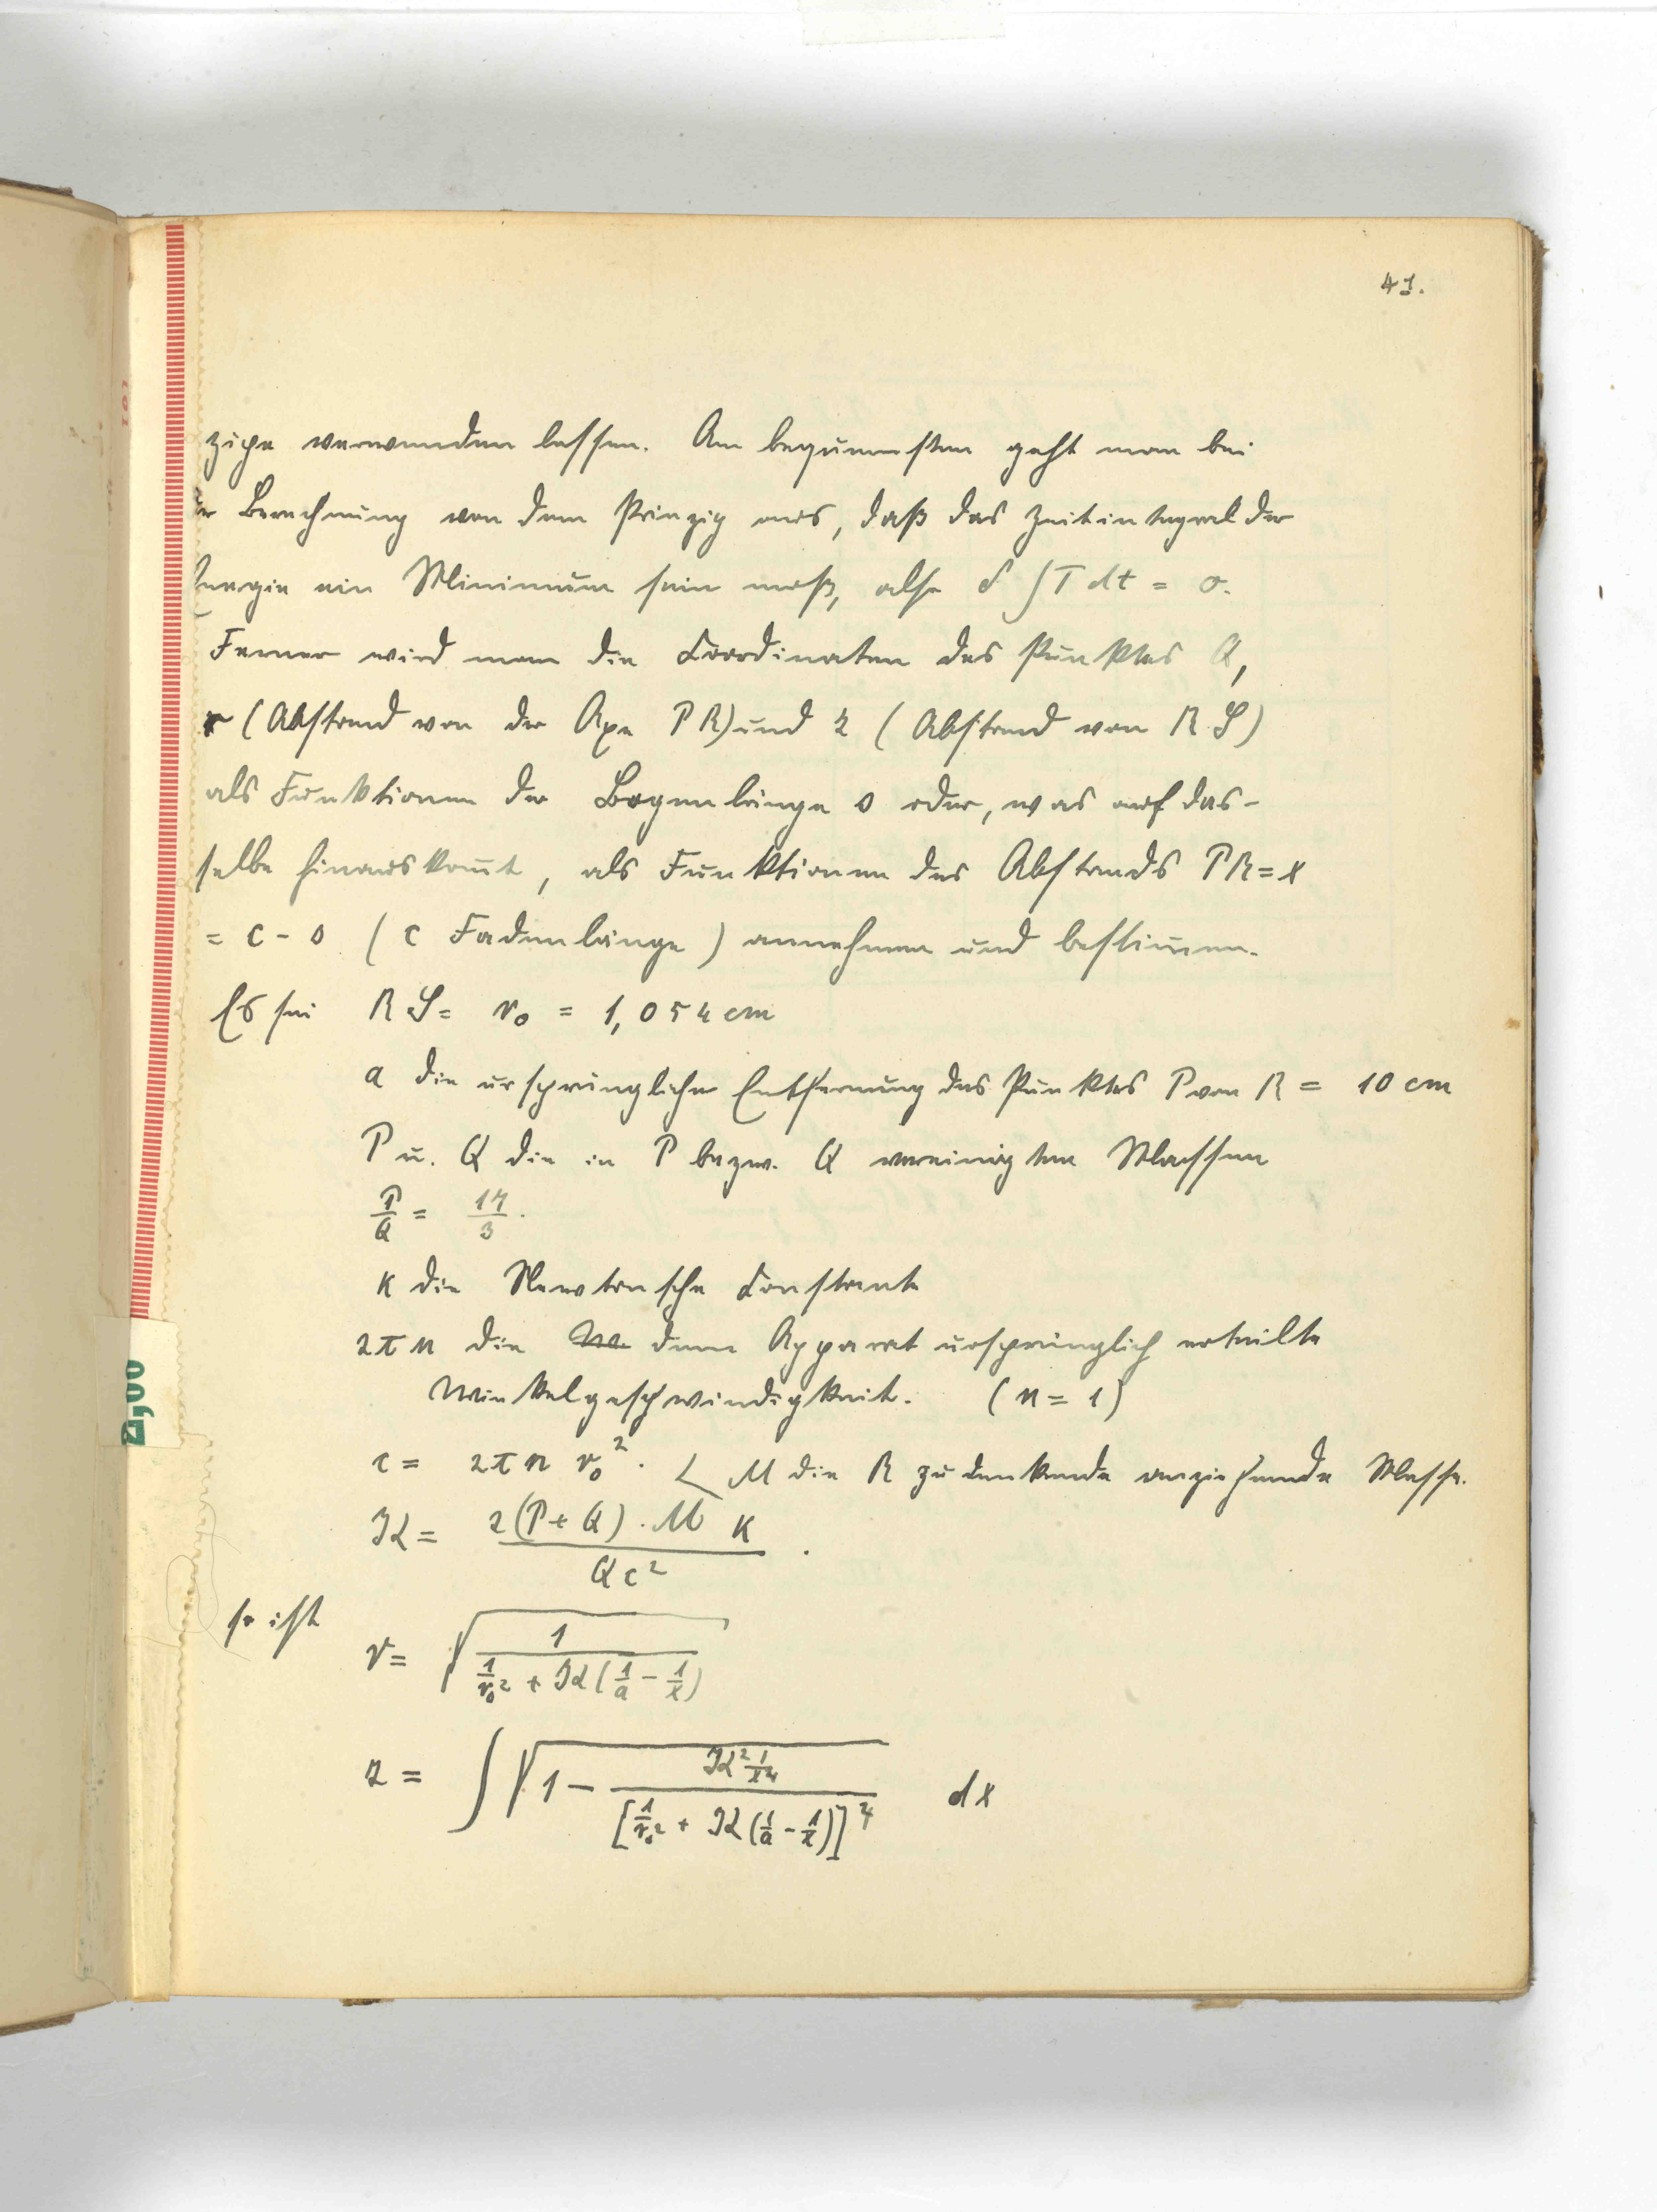 41.
zipe verwenden lassen. Am bequemsten geht man bei
er Berechnung von dem Prinzip aus, daß das Zeitintegral der
Energie ein Minimum sein muß, also δ ∫T dt = 0.
Ferner wird man die Coordinaten des Punktes Q,
r (Abstand von der Axe PR) und z (Abstand von RS)
als Funktionen der Bogenlänge s oder, was auf das-
selbe hinauskom̄t, als Funktionen des Abstands PR = x
= c - s (c Fadenlänge) annehmen und bestim̄en.
Es sei RS = r₀ = 1,054 cm
a die ursprüngliche Entfernung des Punktes P von R = 10 cm
P u. Q die in P bezw. Q vereinigten Massen
P/Q = 14/3.
κ die Newtonsche Constante
2πn die dem Apparat ursprünglich erteilte
Winkelgeschwindigkeit. (n = 1)
c = 2πn r₀². M die R zu denkende anziehende Masse.
K = 2(P+Q) . M κ / Q c² .
so ist
r = √(1 / (1/r₀² + K(1/a - 1/x)))
z = ∫ √(1 - (K² 1/x⁴) / [1/r₀² + K(1/a - 1/x)]) dx
2,00